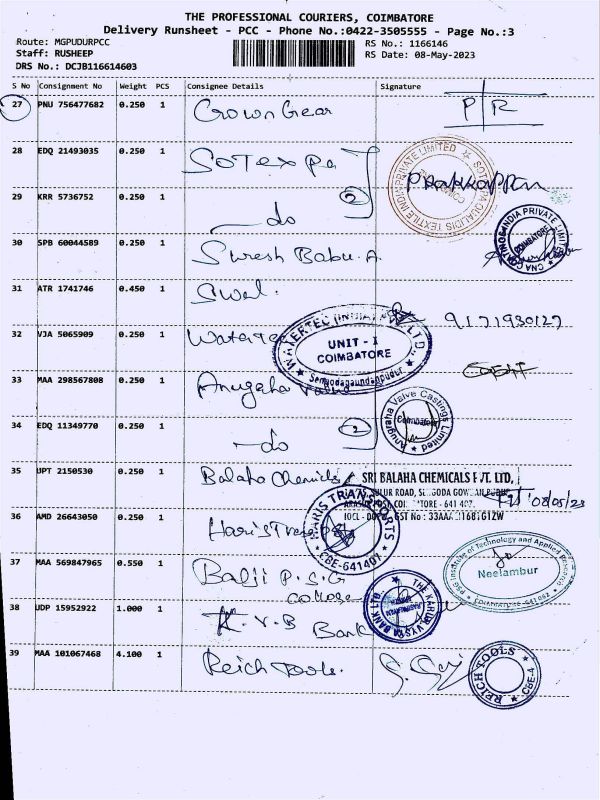 THE PROFESSIONAL COURIERS, COIMBATORE
Delivery Runsheet - PCC - Phone No.:0422-3505555 - Page No.:3
Route: MGPUDURPCC
RS No.: 1166146
Staff: RUSHEEP
RS Date: 08-May-2023
DRS No.: DCJB116614603
S No Consignment No Weight PCS Consignee Details Signature
27 PNU 756477682 0.250 1 Crown Gear P R
28 EDQ 21493035 0.250 1 SOTexpa
SOTEXPA QUALIDIS TEXTILE INDIA PRIVATE LIMITED
29 KRR 5736752 0.250 1 do 2
30 SPB 60044589 0.250 1 Suresh Babu. A
PRIVATE LIMITED
COIMBATORE
31 ATR 1741746 0.450 1
9171930127
32 VJA 5065909 0.250 1
WATERTEC (INDIA) PVT LTD.
UNIT - I
COIMBATORE
33 MAA 298567808 0.250 1 Anugaha Valve
34 EDQ 11349770 0.250 1 do 2
Anugraha Valve Castings Limited
Coimbatore
35 UPT 2150530 0.250 1 Balaha Chemicals
SRI BALAHA CHEMICALS PVT. LTD,
08/05/23
36 AMD 26643050 0.250 1 Haris
HARIS TRANSPORTS
CBE-641407
37 MAA 569847965 0.550 1 Balji P.S.G
College
PSG Institute of Technology and Applied Research
Neelambur
38 UDP 15952922 1.000 1 K.V.B Bank
THE KARUR VYSYA BANK LTD.
39 MAA 101067468 4.100 1 Reich Tools.
REICH TOOLS
CBE-4